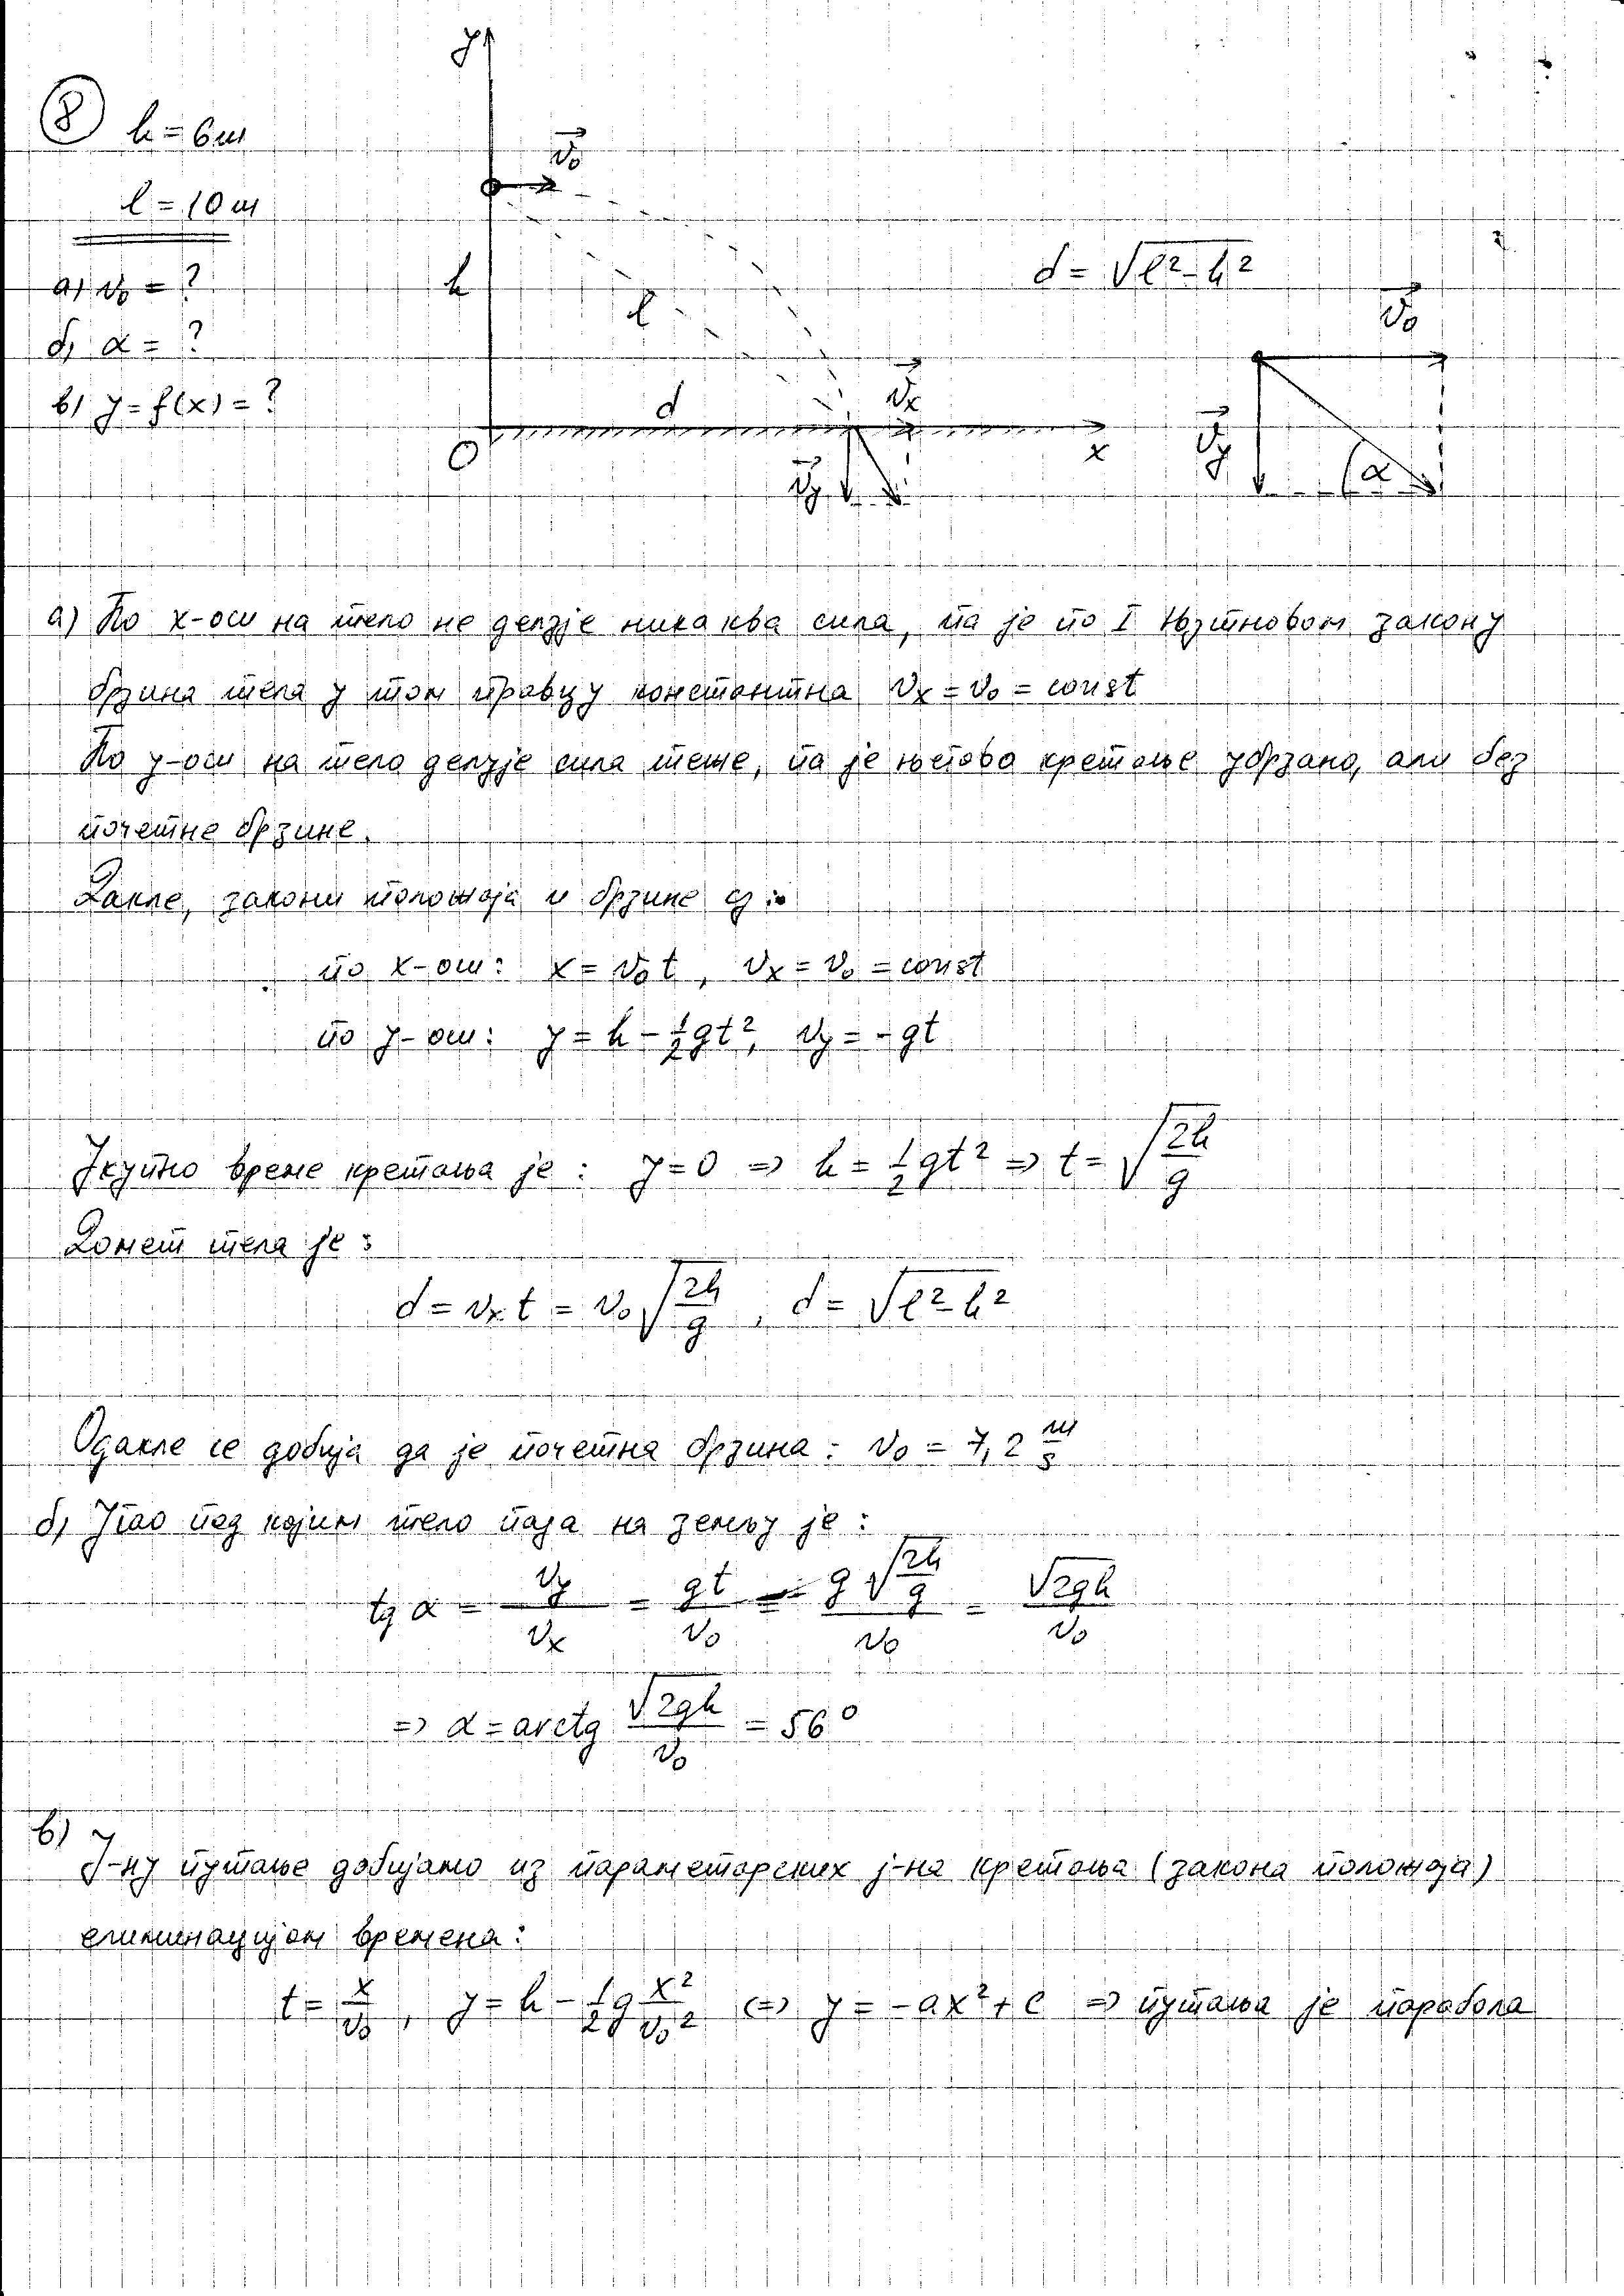 8
h = 6m
l = 10m
а) v₀ = ?
б) α = ?
в) y = f(x) = ?
y
v₀
h
l
d
O
x
vₓ
v_y
d = √(l² - h²)
v₀
v_y
α
а) По x-оси на тело не делује никаква сила, па је по I Њутновом закону
брзина тела у том правцу константна vₓ = v₀ = const
По y-оси на тело делује сила теже, па је његово кретање убрзано, али без
почетне брзине.
Дакле, закони положаја и брзине су:
по x-оси: x = v₀t, vₓ = v₀ = const
по y-оси: y = h - 1/2 gt², v_y = -gt
Укупно време кретања је: y = 0 => h = 1/2 gt² => t = √(2h/g)
Домет тела је:
d = vₓt = v₀√(2h/g), d = √(l² - h²)
Одакле се добија да је почетна брзина: v₀ = 7,2 m/s
б) Угао под којим тело пада на земљу је:
tg α = v_y/vₓ = gt/v₀ = g√(2h/g)/v₀ = √(2gh)/v₀
=> α = arctg √(2gh)/v₀ = 56°
в) Ј-ну путање добијамо из параметарских ј-на кретања (закона положаја)
елиминацијом времена:
t = x/v₀, y = h - 1/2 g x²/v₀² <=> y = -ax² + c => путања је парабола